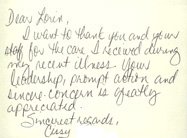 Dear Lorin,
I want to thank you and your
staff for the care I received during
my recent illness. Your
leadership, prompt action and
sincere concern is greatly
appreciated.
Sincerest regards,